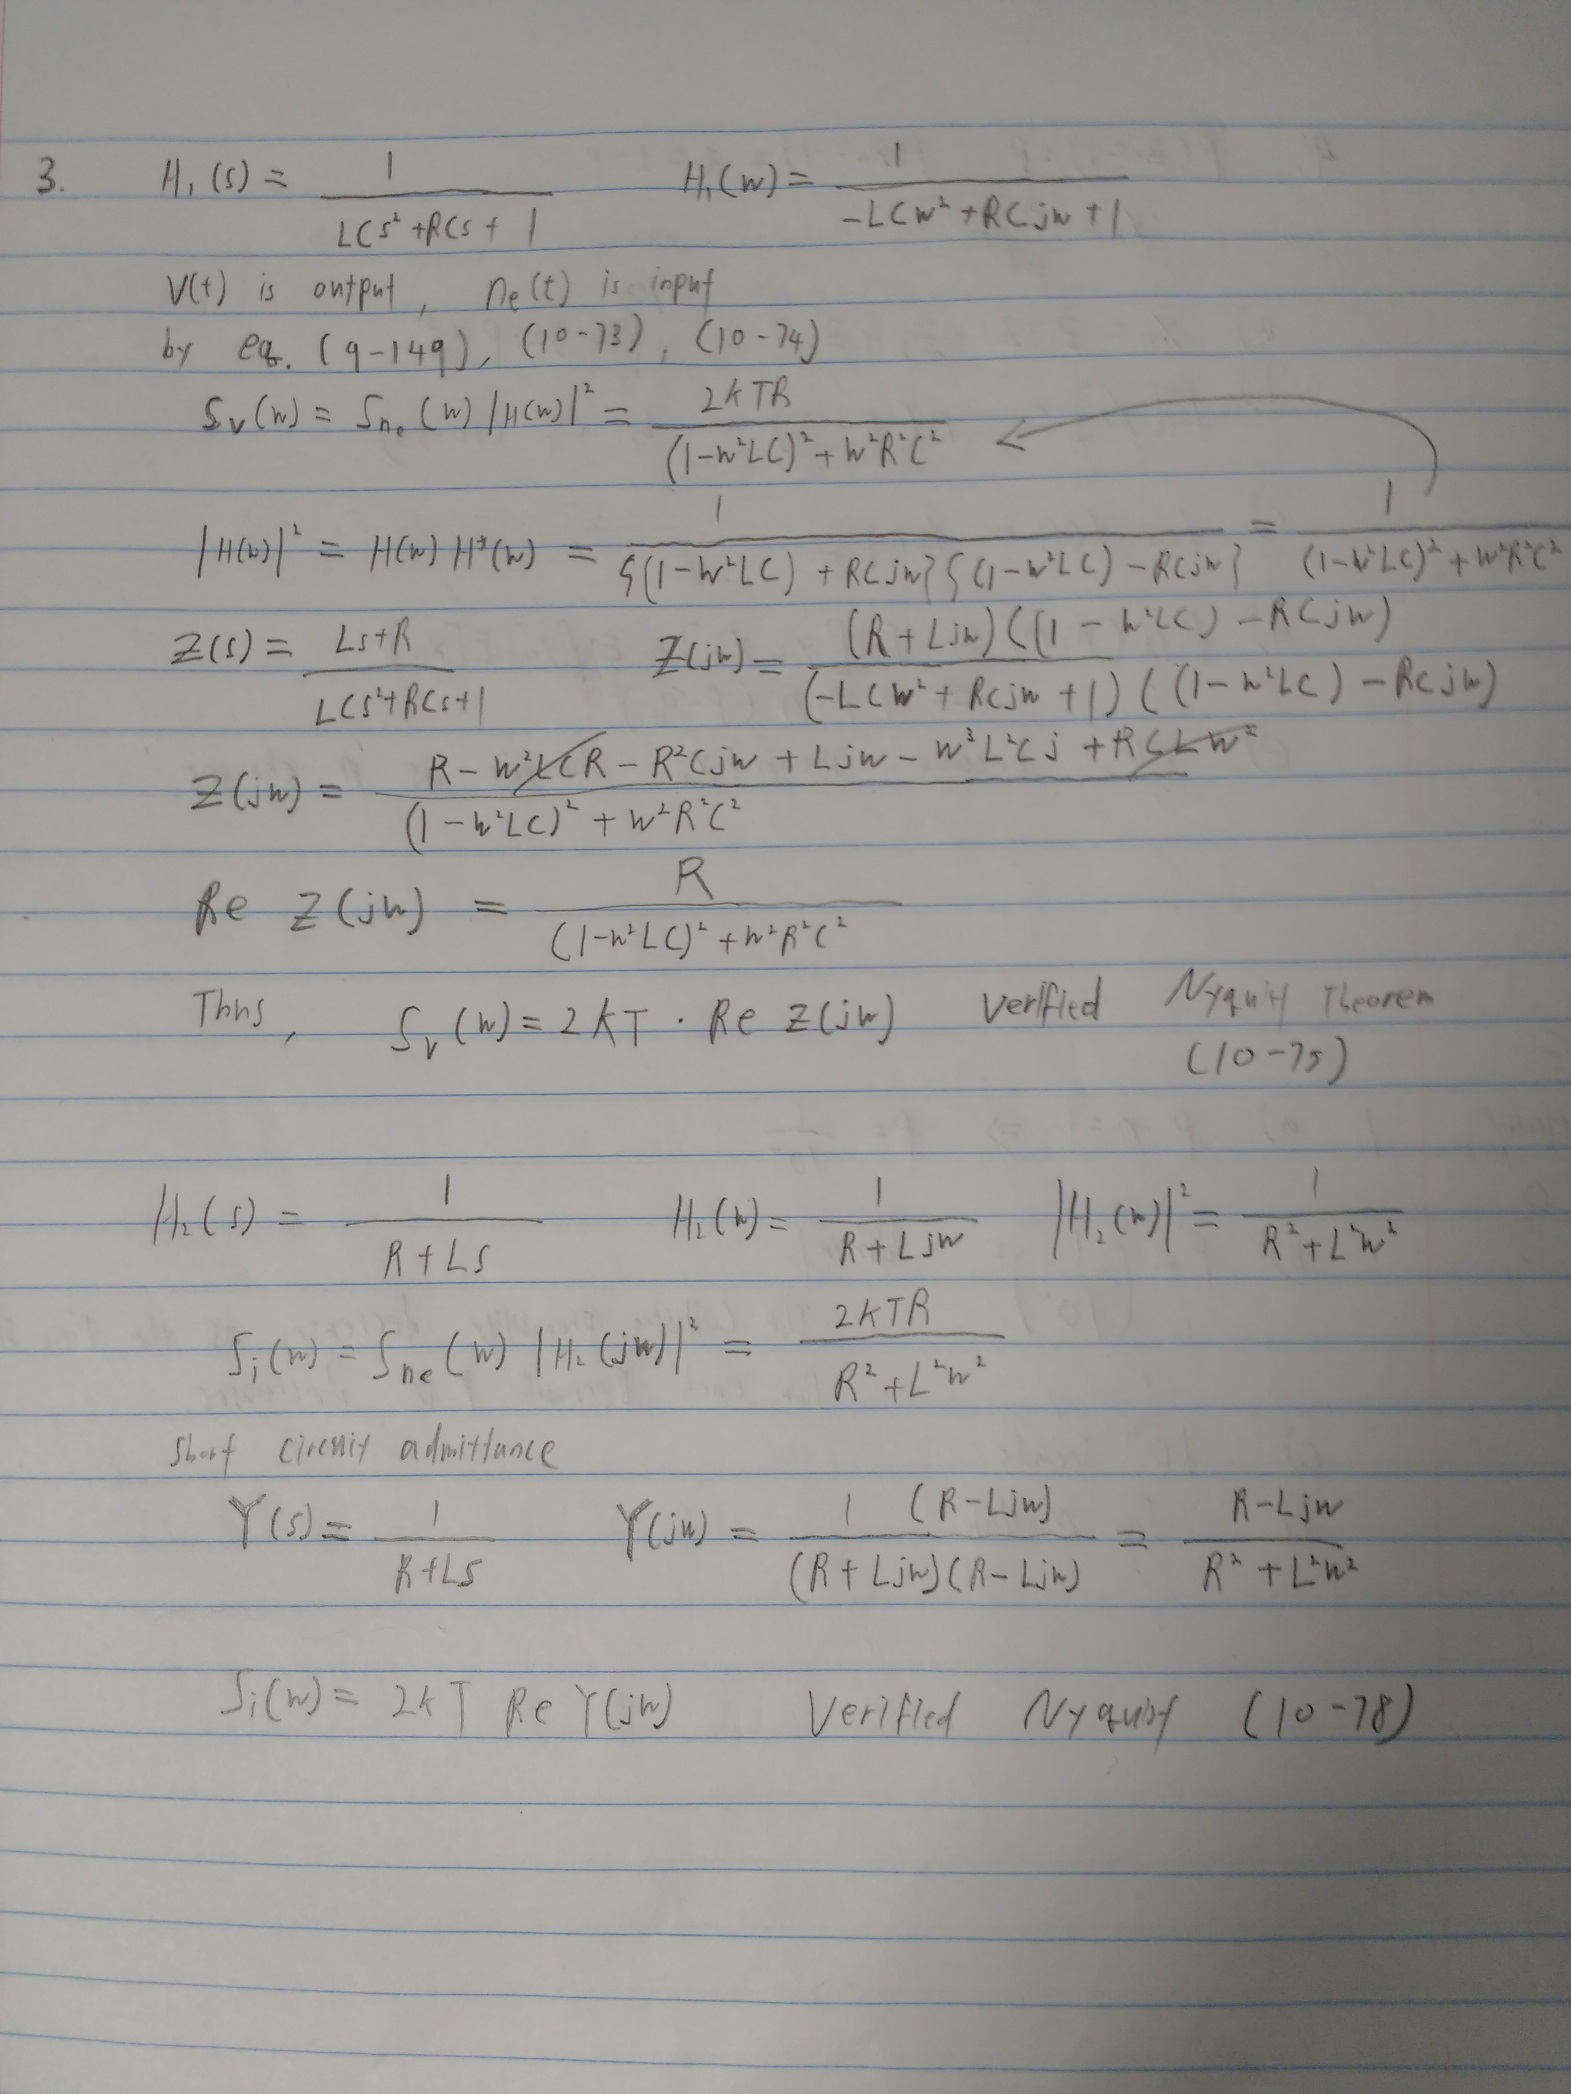 3. H₁(s) = 1 / (LCs² + RCs + 1)    H₁(w) = 1 / (-LCw² + RCjw + 1)
V(t) is output, ne(t) is input
by eq. (9-149), (10-73), (10-74)
Sv(w) = Sne(w) |H(w)|² = 2kTR / ((1-w²LC)² + w²R²C²)
|H(w)|² = H(w) H*(w) = 1 / ({(1-w²LC) + RCjw}{(1-w²LC) - RCjw}) = 1 / ((1-w²LC)² + w²R²C²)
Z(s) = (Ls+R) / (LCs²+RCs+1)    Z(jw) = (R+Ljw)((1-w²LC) - RCjw) / ((-LCw² + RCjw + 1)((1-w²LC) - RCjw))
Z(jw) = (R - w²LCR - R²Cjw + Ljw - w³L²Cj + RCLw²) / ((1-w²LC)² + w²R²C²)
Re Z(jw) = R / ((1-w²LC)² + w²R²C²)
Thus, Sv(w) = 2kT · Re Z(jw)    Verified Nyquist Theorem
(10-75)
H₂(s) = 1 / (R+Ls)    H₂(w) = 1 / (R+Ljw)    |H₂(w)|² = 1 / (R²+L²w²)
Si(w) = Sne(w) |H₂(jw)|² = 2kTR / (R²+L²w²)
Short circuit admittance
Y(s) = 1 / (R+Ls)    Y(jw) = 1 (R-Ljw) / ((R+Ljw)(R-Ljw)) = (R-Ljw) / (R²+L²w²)
Si(w) = 2kT Re Y(jw)    Verified Nyquist (10-78)